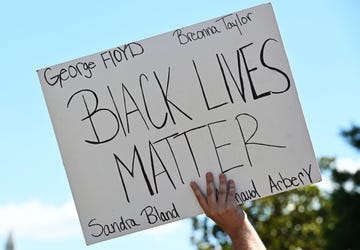 George FLOYD
Breonna Taylor
BLACK LIVES
MATTER
Sandra Bland
Arbery